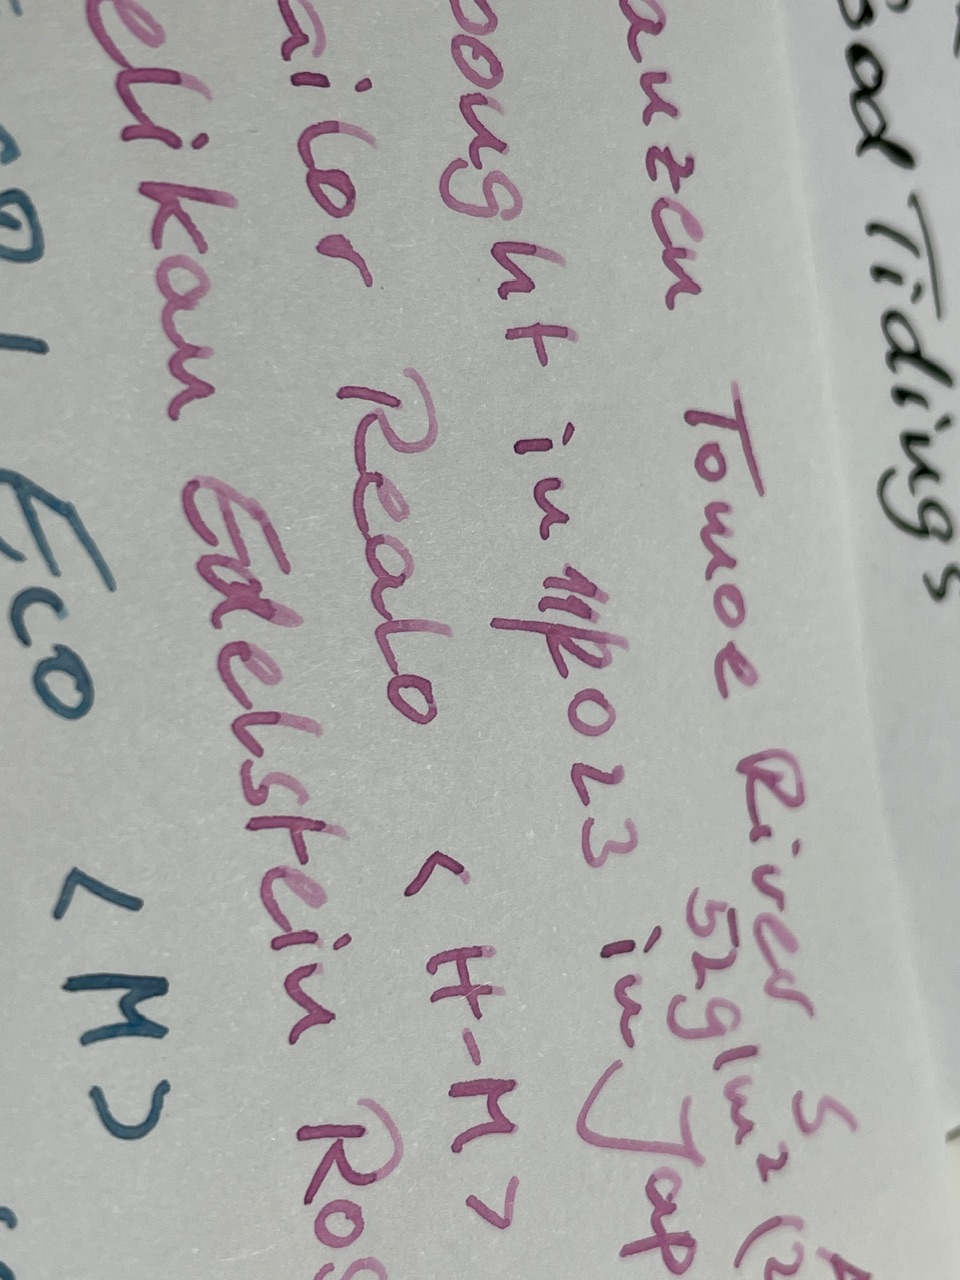 Bad Tidings
anzen Tomoe River S
52g/m² (2
bought in 11/2023 in Jap
ailor Realo <H-M>
elikan Edelstein Ros
Eco <M>